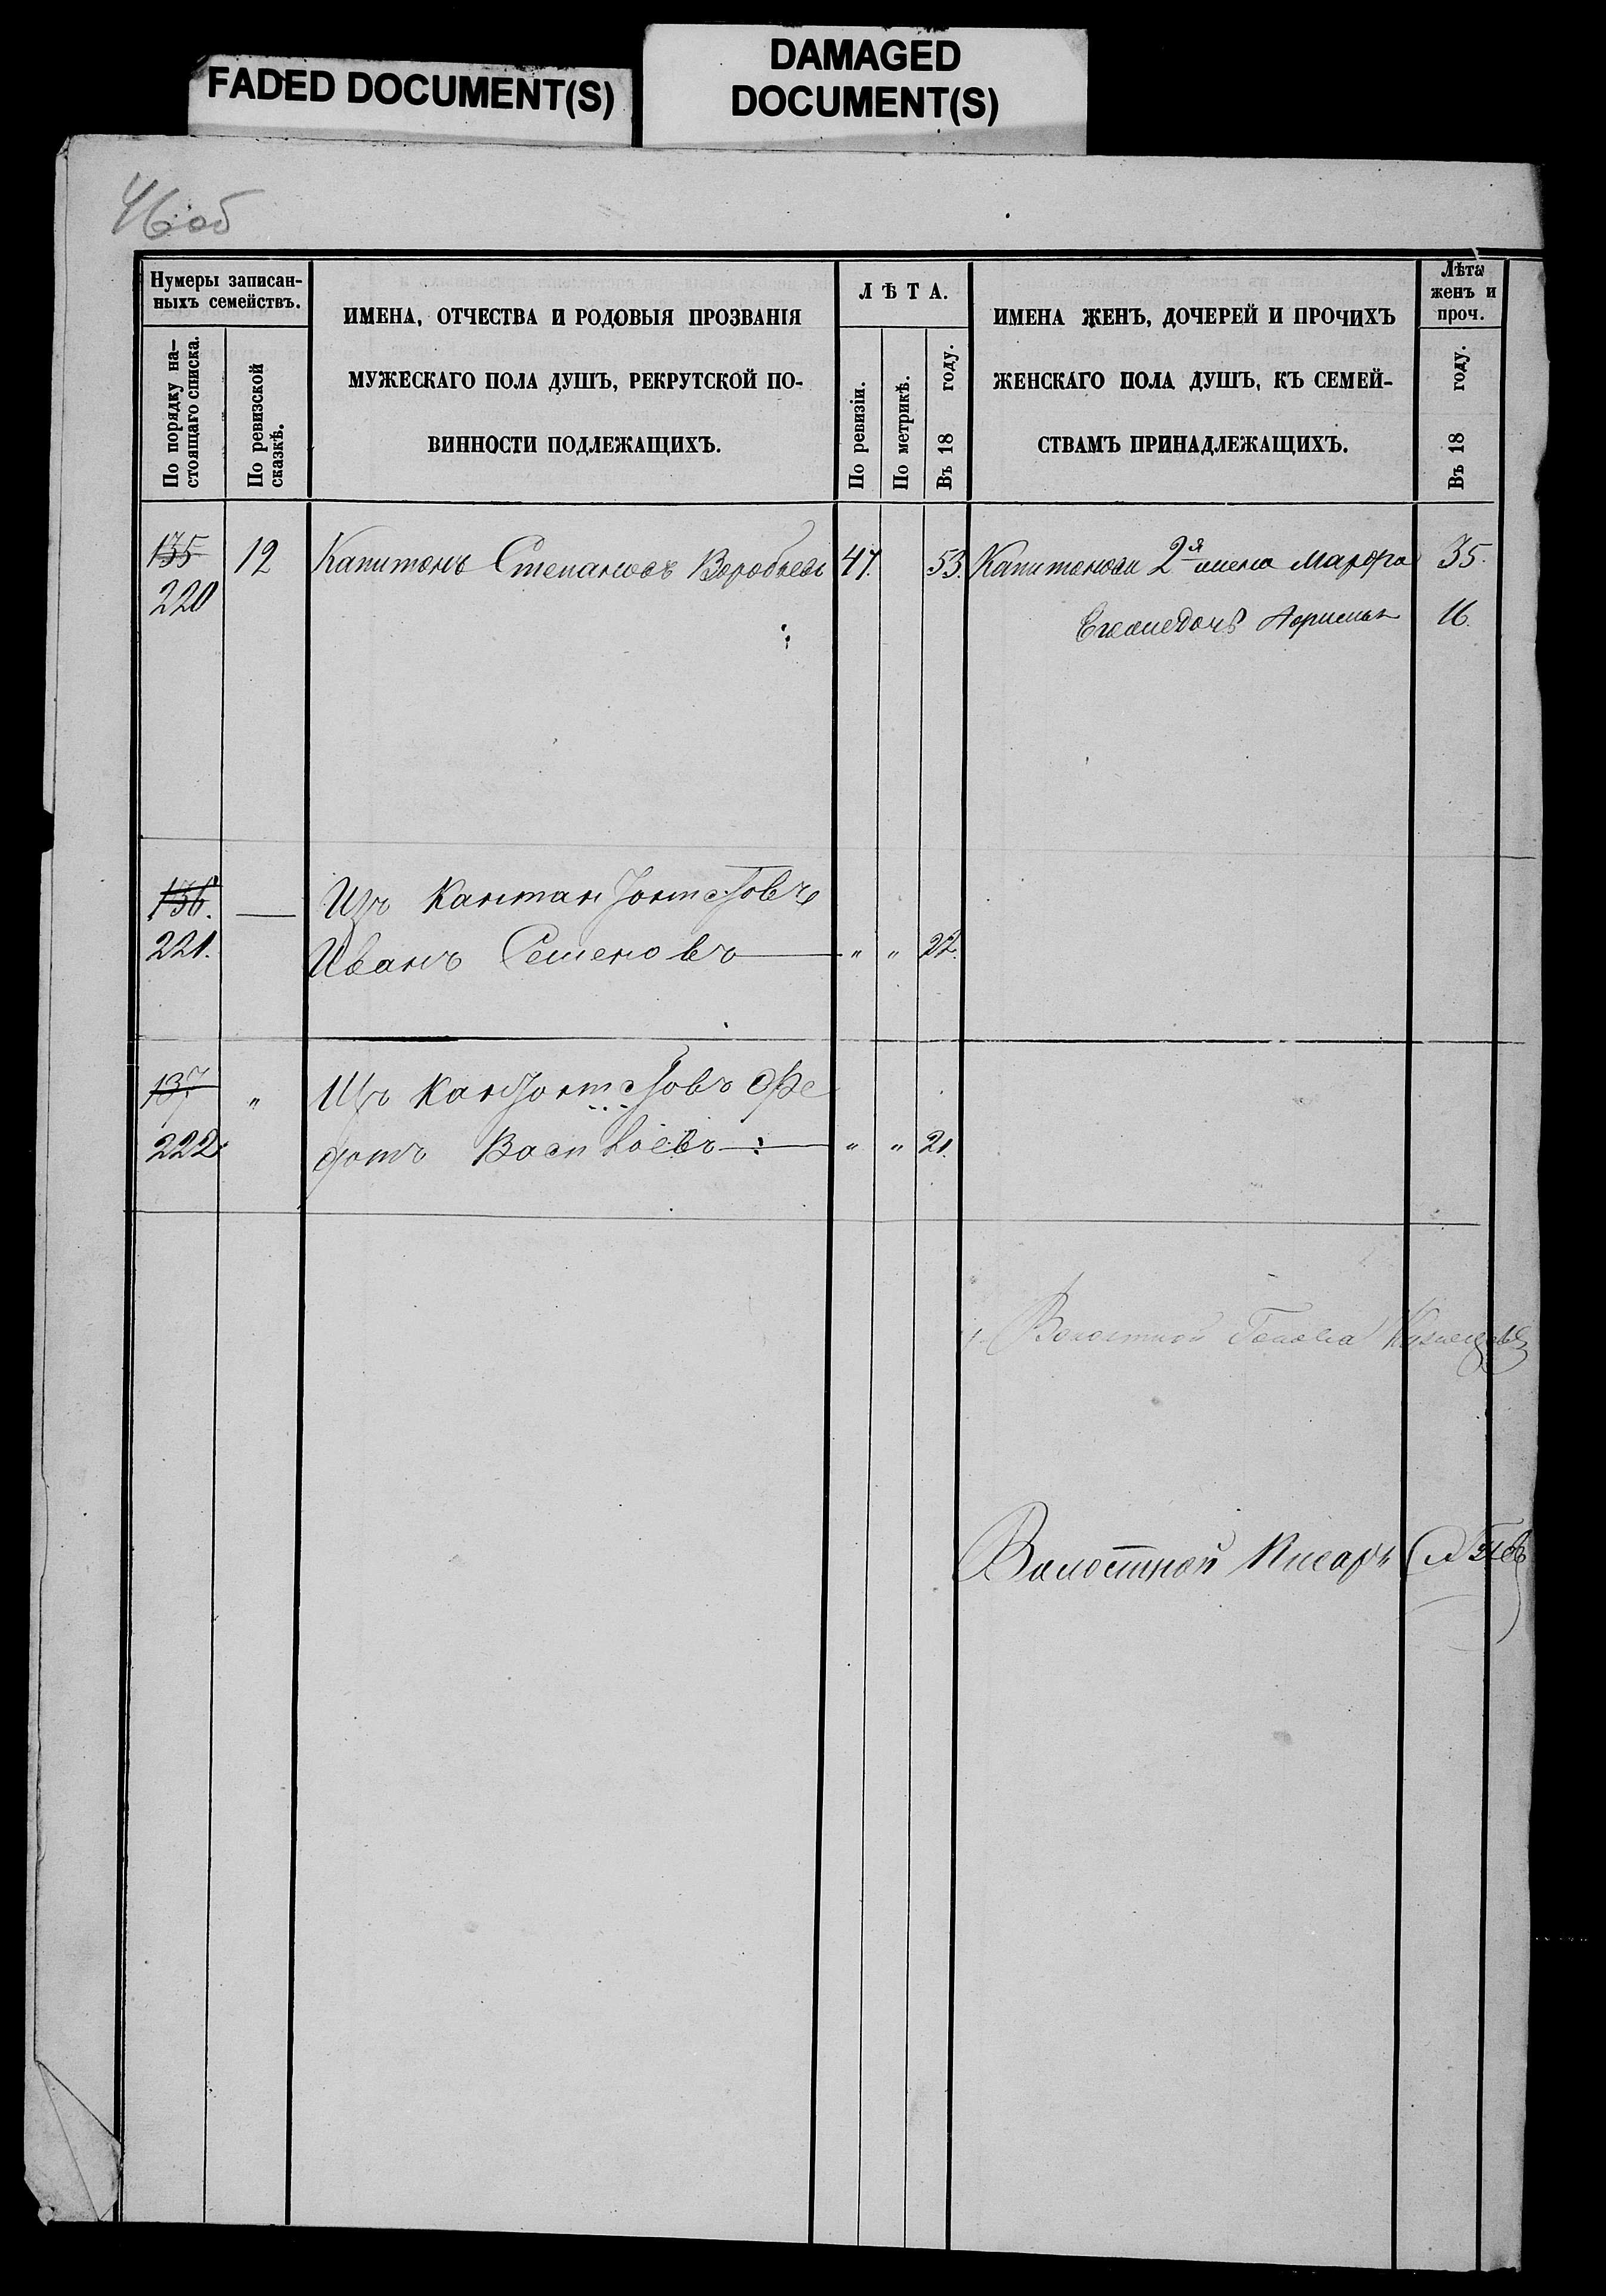 FADED DOCUMENT(S)
DAMAGED
DOCUMENT(S)
46 об
Нумеры записан-
ныхъ семействъ.
По порядку на-
стоящаго списка.
По ревизской
сказкѣ.
ИМЕНА, ОТЧЕСТВА И РОДОВЫЯ ПРОЗВАНІЯ
МУЖЕСКАГО ПОЛА ДУШЪ, РЕКРУТСКОЙ ПО-
ВИННОСТИ ПОДЛЕЖАЩИХЪ.
ЛѢТА.
По ревизіи.
По метрикѣ.
Въ 18 году.
ИМЕНА ЖЕНЪ, ДОЧЕРЕЙ И ПРОЧИХЪ
ЖЕНСКАГО ПОЛА ДУШЪ, КЪ СЕМЕЙ-
СТВАМЪ ПРИНАДЛЕЖАЩИХЪ.
Лѣта
женъ и
проч.
Въ 18 году.
135 12 Капитонъ Степановъ Воробьевъ 47. 53. Капитонова 2я жена Марфа 35.
220
Его же дочь 16.
136. — Изъ Кантонистовъ
221. Иванъ Семеновъ — " " 22.
137. " Изъ Кантонистовъ Фе
222. дотъ Васильевъ — " " 21.
Волостной Голова Кузнецовъ
Волостной Писарь